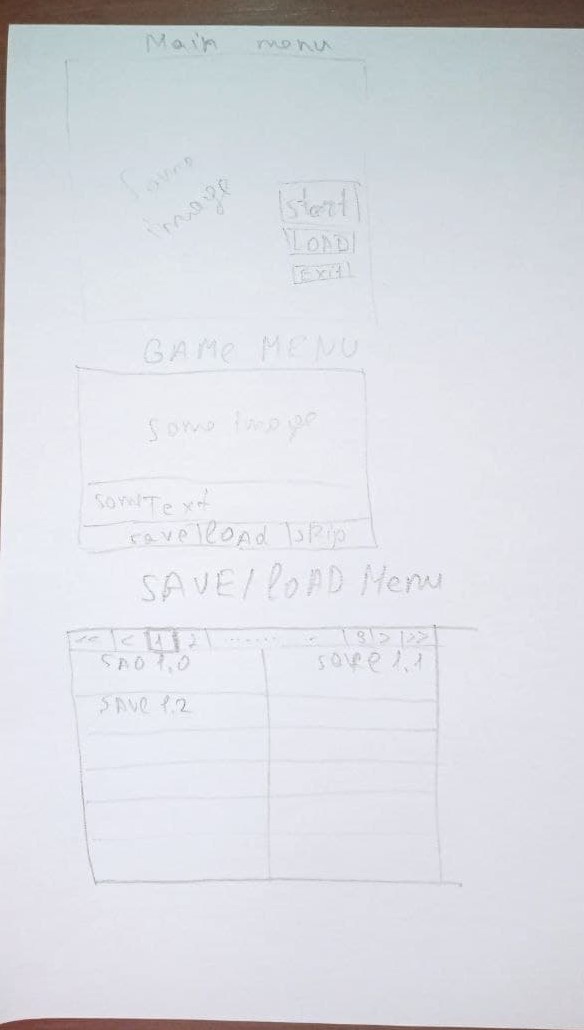 Main menu
Some
image
Start
LOAD
Exit
GAMe MENU
some image
someText
save/lOAd |skip
SAVE/lOAD Menu
<< | < | 1 | 2 | ....... - | 9 | > | >>
save 1,1
SAVe 1,2